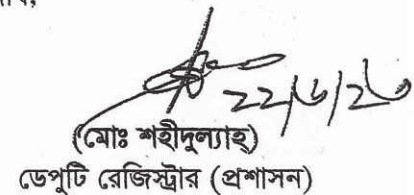 ২২/৬/২৬
(মোঃ শহীদুল্যাহ্)
ডেপুটি রেজিস্ট্রার (প্রশাসন)